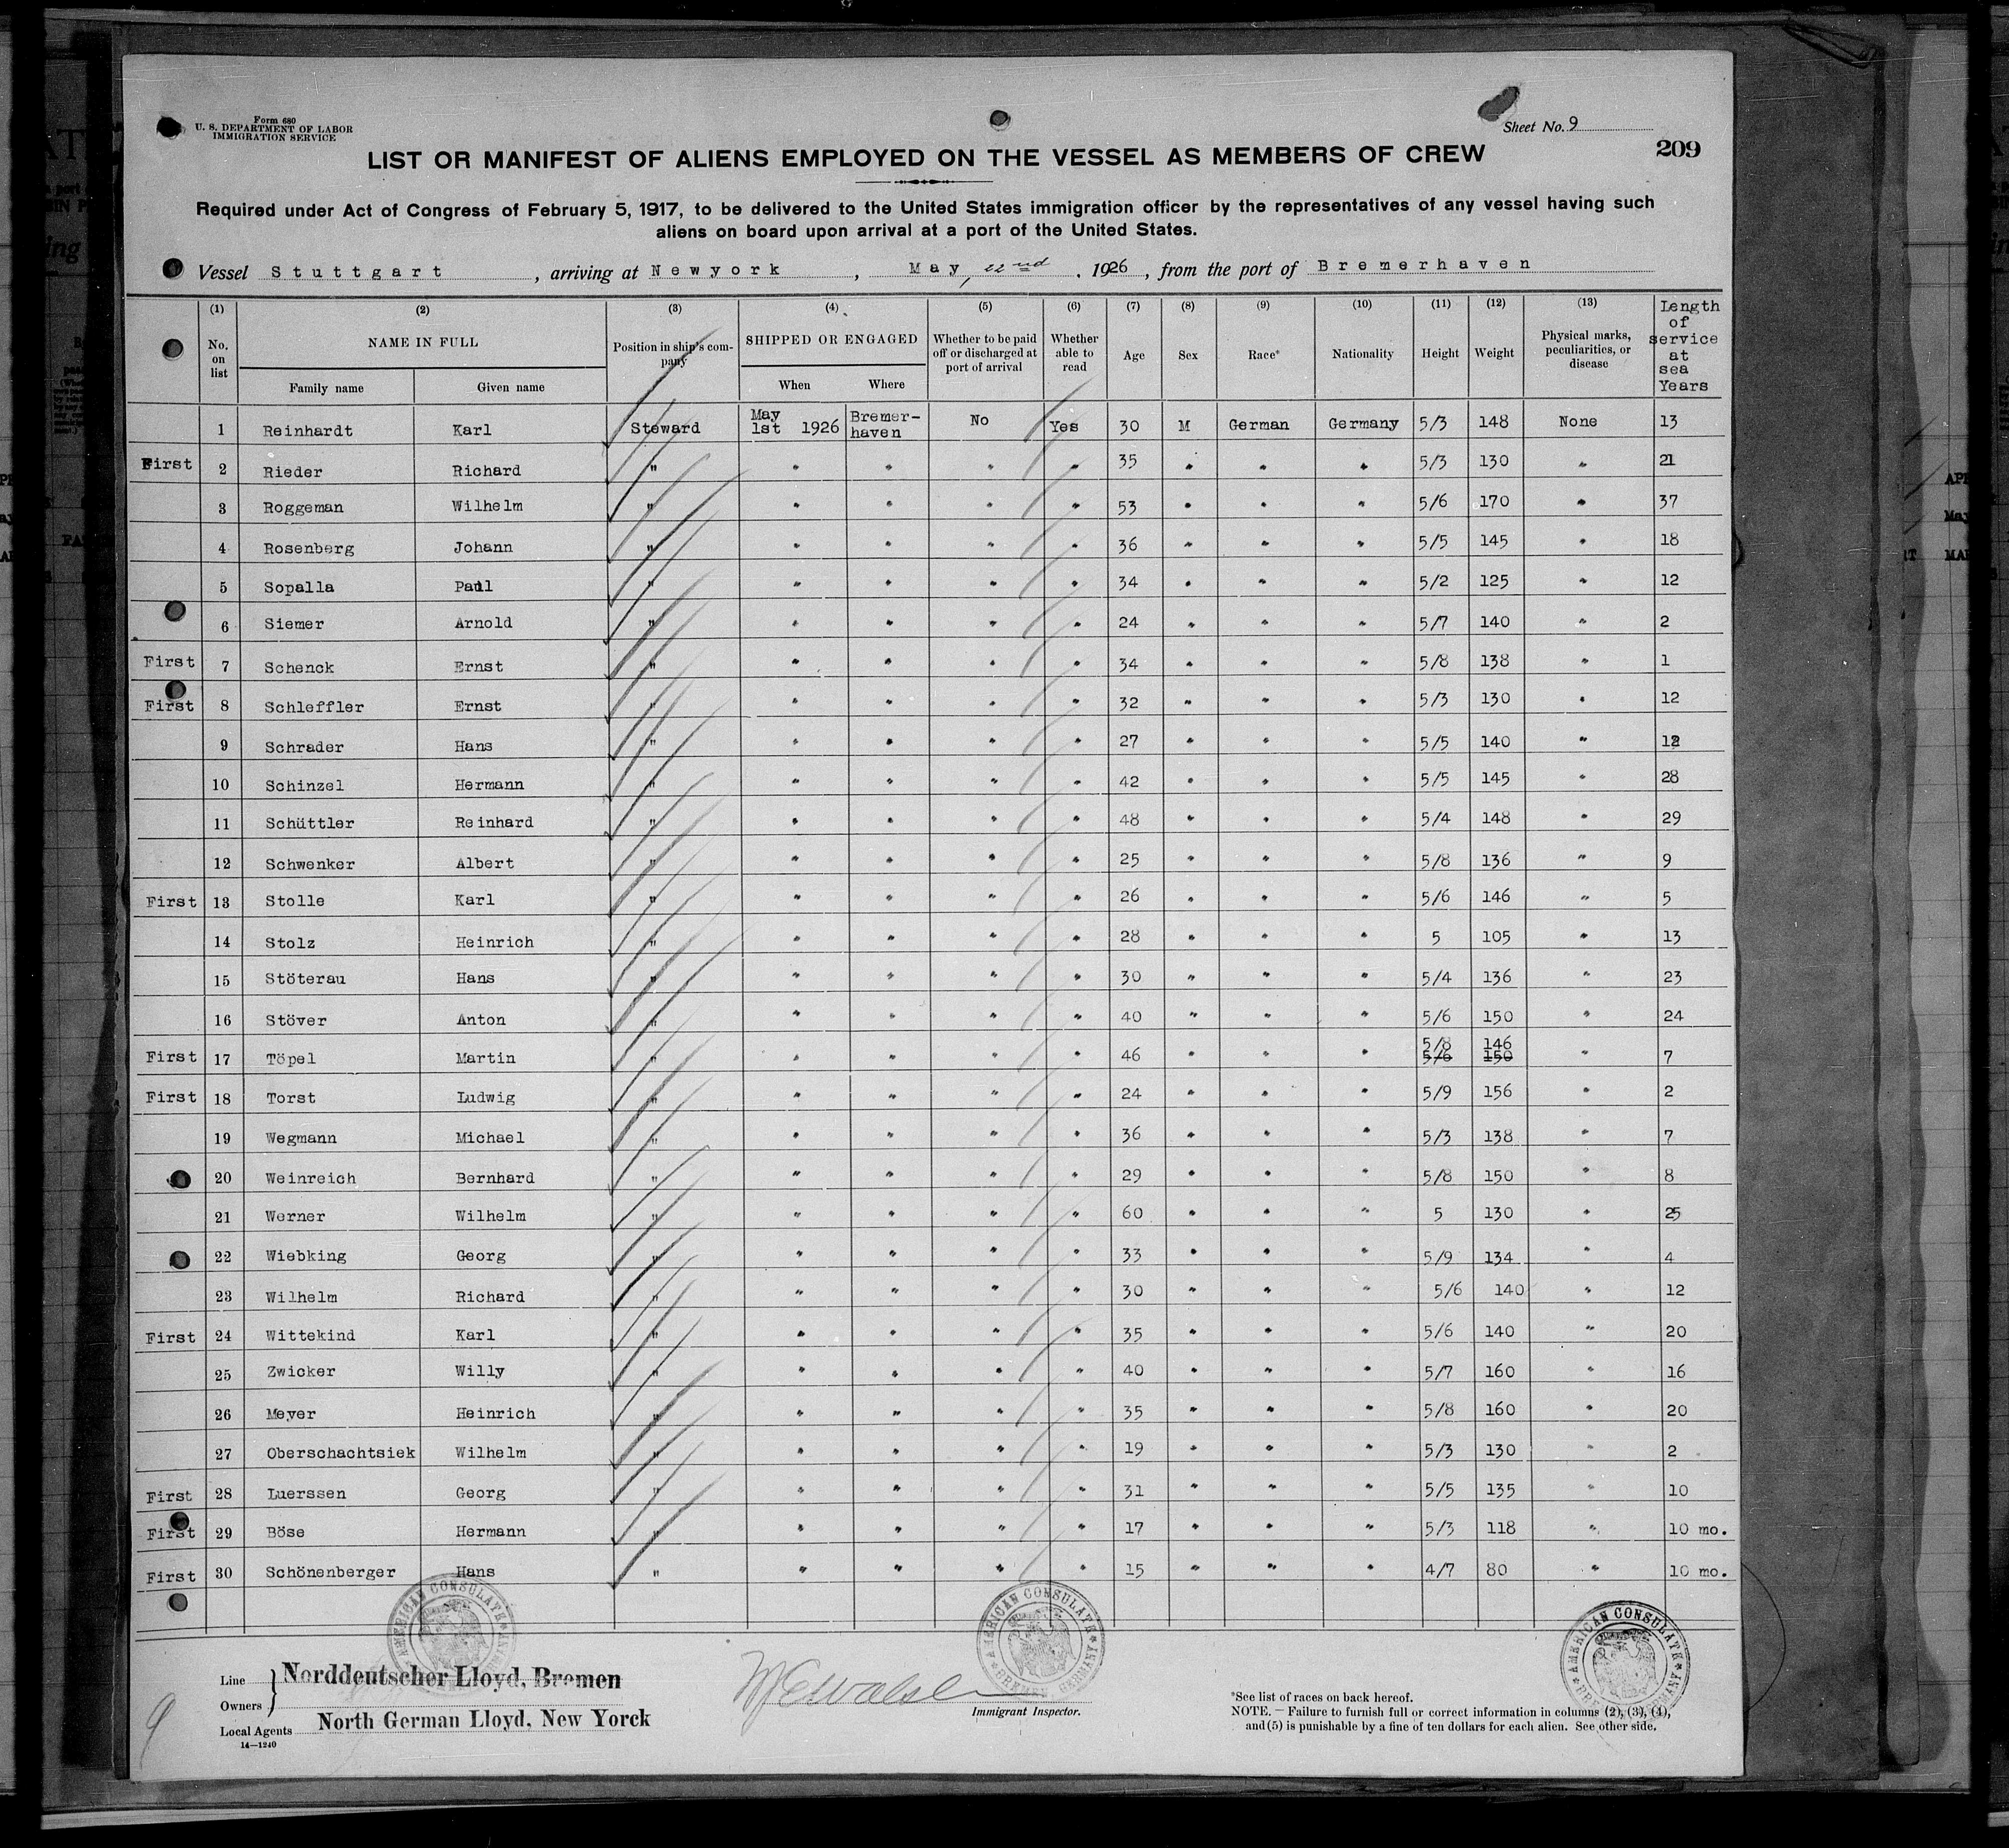 Form 680
U. S. DEPARTMENT OF LABOR
IMMIGRATION SERVICE
Sheet No. 9
209
LIST OR MANIFEST OF ALIENS EMPLOYED ON THE VESSEL AS MEMBERS OF CREW
Required under Act of Congress of February 5, 1917, to be delivered to the United States immigration officer by the representatives of any vessel having such
aliens on board upon arrival at a port of the United States.
Vessel Stuttgart, arriving at Newyork, May, 22nd, 1926, from the port of Bremerhaven
(1) (2) (3) (4) (5) (6) (7) (8) (9) (10) (11) (12) (13) Length of service at sea Years
No. on list NAME IN FULL Position in ship's company SHIPPED OR ENGAGED Whether to be paid off or discharged at port of arrival Whether able to read Age Sex Race* Nationality Height Weight Physical marks, peculiarities, or disease
Family name Given name When Where
1 Reinhardt Karl Steward May 1st 1926 Bremerhaven No Yes 30 M German Germany 5/3 148 None 13
First 2 Rieder Richard " " " " " 35 " " " 5/3 130 " 21
3 Roggeman Wilhelm " " " " " 53 " " " 5/6 170 " 37
4 Rosenberg Johann " " " " " 36 " " " 5/5 145 " 18
5 Sopalla Paul " " " " " 34 " " " 5/2 125 " 12
6 Siemer Arnold " " " " " 24 " " " 5/7 140 " 2
First 7 Schenck Ernst " " " " " 34 " " " 5/8 138 " 1
First 8 Schleffler Ernst " " " " " 32 " " " 5/3 130 " 12
9 Schrader Hans " " " " " 27 " " " 5/5 140 "
10 Schinzel Hermann " " " " " 42 " " " 5/5 145 " 28
11 Schüttler Reinhard " " " " " 48 " " " 5/4 148 " 29
12 Schwenker Albert " " " " " 25 " " " 5/8 136 " 9
First 13 Stolle Karl " " " " " 26 " " " 5/6 146 " 5
14 Stolz Heinrich " " " " " 28 " " " 5 105 " 13
15 Stöterau Hans " " " " " 30 " " " 5/4 136 " 23
16 Stöver Anton " " " " " 40 " " " 5/6 150 " 24
First 17 Töpel Martin " " " " " 46 " " " 5/8 5/6 146 150 " 7
First 18 Torst Ludwig " " " " " 24 " " " 5/9 156 " 2
19 Wegmann Michael " " " " " 36 " " " 5/3 138 " 7
20 Weinreich Bernhard " " " " " 29 " " " 5/8 150 " 8
21 Werner Wilhelm " " " " " 60 " " " 5 130 " 25
22 Wiebking Georg " " " " " 33 " " " 5/9 134 " 4
23 Wilhelm Richard " " " " " 30 " " " 5/6 140 " 12
First 24 Wittekind Karl " " " " " 35 " " " 5/6 140 " 20
25 Zwicker Willy " " " " " 40 " " " 5/7 160 " 16
26 Meyer Heinrich " " " " " 35 " " " 5/8 160 " 20
27 Oberschachtsiek Wilhelm " " " " " 19 " " " 5/3 130 " 2
First 28 Luerssen Georg " " " " " 31 " " " 5/5 135 " 10
First 29 Böse Hermann " " " " " 17 " " " 5/3 118 " 10 mo.
First 30 Schönenberger Hans " " " " " 15 " " " 4/7 80 " 10 mo.
AMERICAN CONSULATE
AMERICAN CONSULATE BREMEN GERMANY
AMERICAN CONSULATE BREMEN GERMANY
Line
Owners } Norddeutscher Lloyd, Bremen
Local Agents North German Lloyd, New Yorck
14—1240
9
Immigrant Inspector.
*See list of races on back hereof.
NOTE. — Failure to furnish full or correct information in columns (2), (3), (4),
and (5) is punishable by a fine of ten dollars for each alien. See other side.